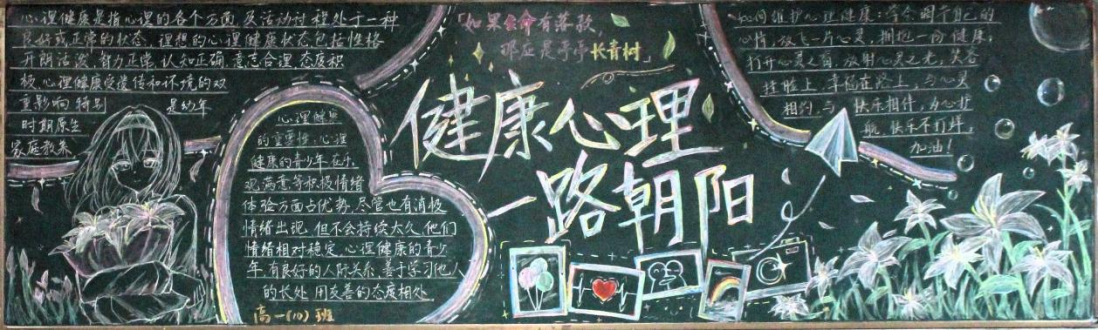 心理健康是指心理的各个方面及活动过程处于一种
良好或正常的状态.理想的心理健康状态包括性格
开朗活泼,智力正常,认知正确,意志合理,态度积
极.心理健康受遗传和环境的双
重影响 特别 是幼年
时期原生
家庭教养
心理健康
的重要性,心理
健康的青少年在乐
观满意等积极情绪
体验方面占优势.尽管也有消极
情绪出现,但不会持续太久,他们
情绪相对稳定.心理健康的青少
年有良好的人际关系,善于学习他人
的长处 用友善的态度相处.
高一(10)班
「如果生命有落款,
那应是亭亭长青树」
健康心理
一路朝阳
如何维护心理健康:学会调节自己的
心情,放飞一片心灵,拥抱一份健康,
打开心灵之窗,放射心灵之光,笑容
挂脸上,幸福在路上,与心灵
相约,与 快乐相伴,为心护
航,快乐不打烊,
加油!